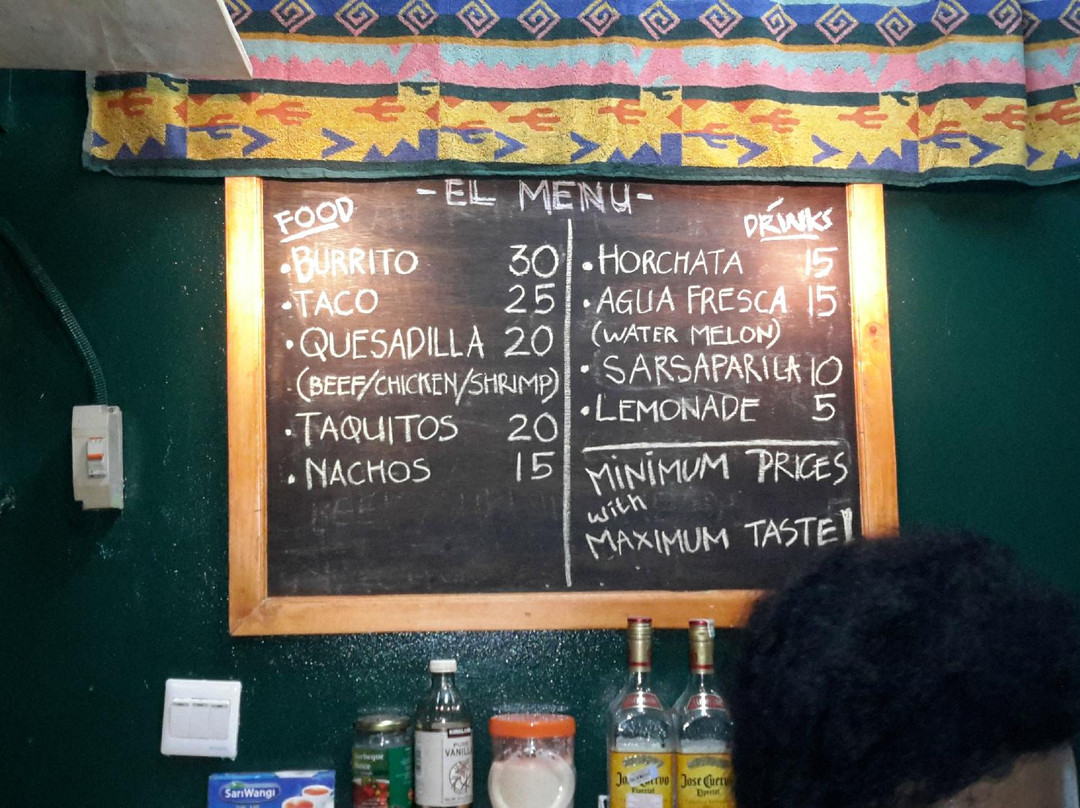 - EL MENU -
FOOD
• BURRITO 30
• TACO 25
• QUESADILLA 20
(BEEF/CHICKEN/SHRIMP)
• TAQUITOS 20
• NACHOS 15
DRINKS
• HORCHATA 15
• AGUA FRESCA 15
(WATER MELON)
• SARSAPARILA 10
• LEMONADE 5
MINIMUM PRICES
with
MAXIMUM TASTE!
SariWangi
KIRKLAND
PURE
VANILLA
Jose Cuervo
Especial
Jose Cuervo
Especial